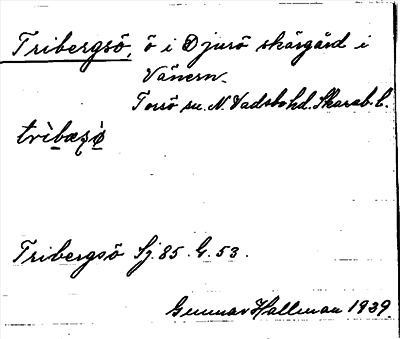 Tribergsö, ö i Djurö skärgård i
Vänern.
Torsö sn. N. Vadsbo hd. Skarab. l.
trìbæsò̤
Tribergsö Sj. 85. G. 53.
Gunnar Hallman 1939